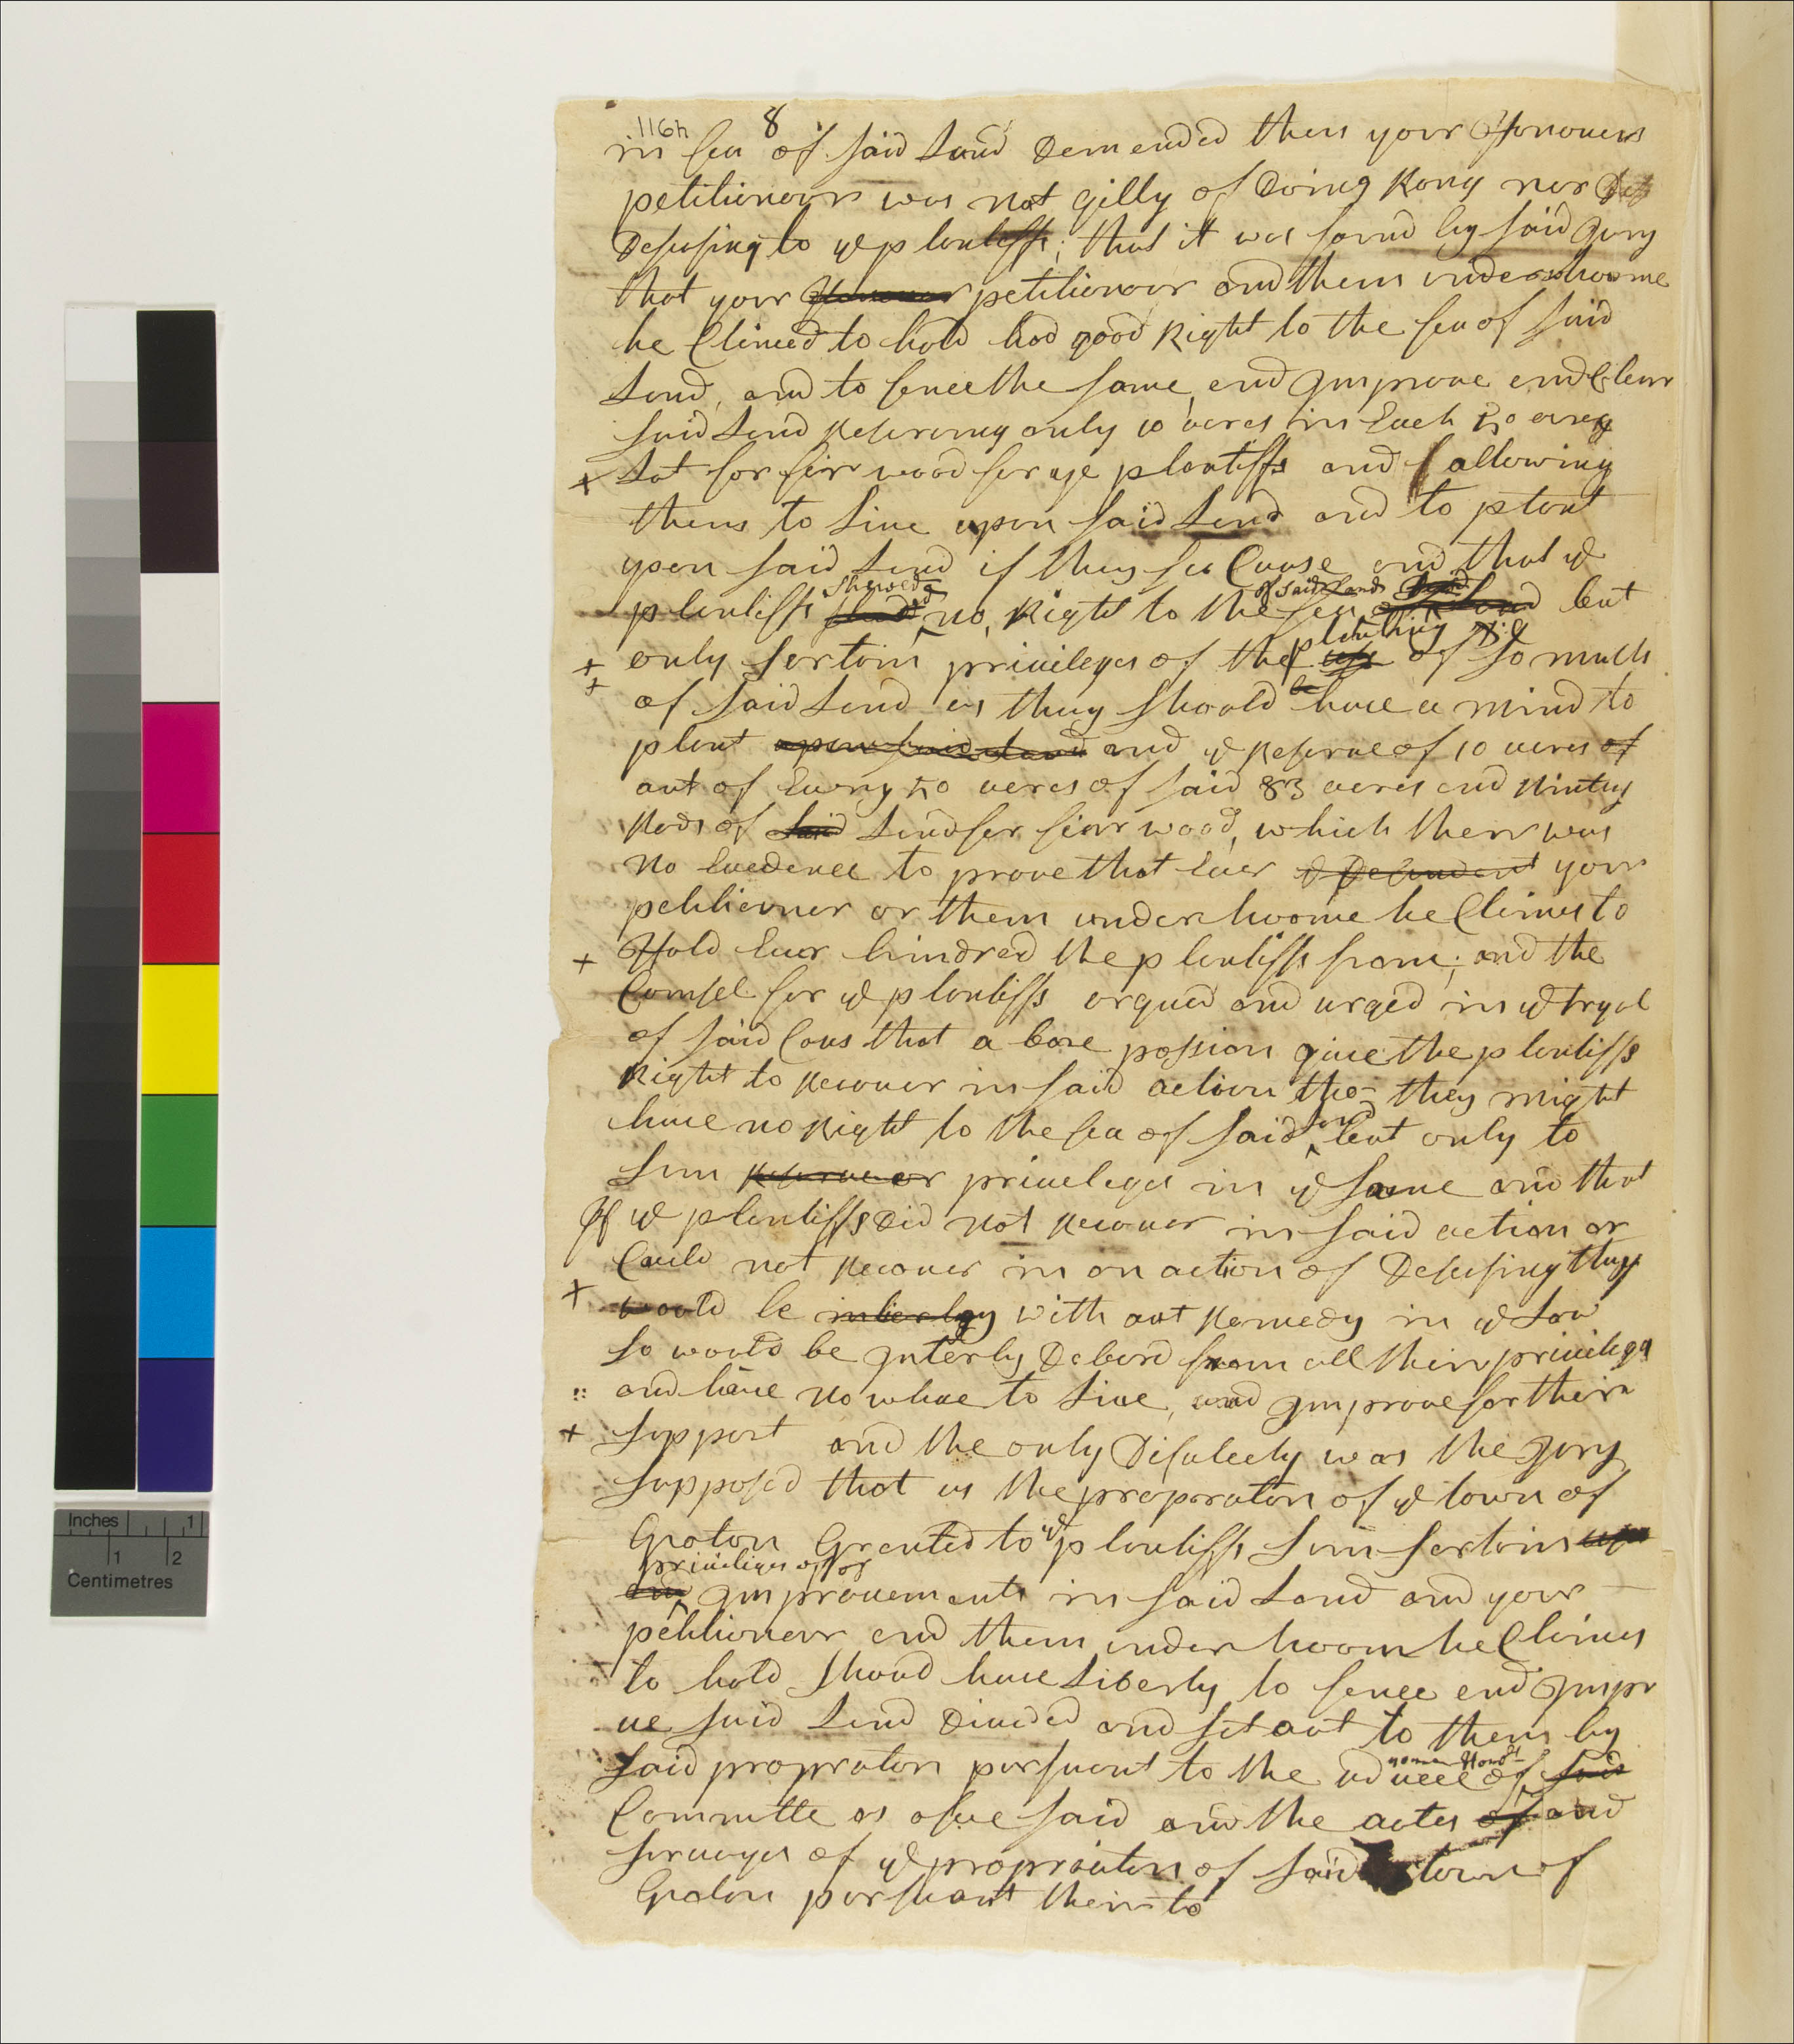 116h 8
in feu of said Land Demended then your Honouers
petitionour was not gilly of Doing Rong nor
Desesing to ye plentiffs; that it was found by said Jury
that your Honouer petitionour and them under whoome
he Climed to hold had good Right to the feu of said
Lond, and to fence the same, end Improve end Clear
said Lend Reserving only 10 acres in Each 50 every
+ Lot for fier wood for ye plentiffs and allowing
them to Live upon said Lend and to plant
upon said Lend if they see Cause and that ye
plentiffs shewed no Right to the feu of said Lands but
+ only sertain privileges of the planting of so much
+ of said Lend as they should have a mind to
plant upon said Land and ye Reserve of 10 acres of
out of Every 50 acres of said 83 acres end Ninety
Rods of said Lend for fiar wood, which ther was
no Evedence to prove that Ever ye Defendent your
petitieoner or them under hoome he Climes to
+ Hold Ever hindred the plentiffs from; and the
Counsel for ye plentiffs argued and urged in ye tryal
of said Caus that a bare possion give the plentiffs
Right to Recover in said action tho they might
have no Right to the feu of said Land but only to
Sum Reserve or priveleges in ye same and that
If ye plentiffs Did not Recover in said action or
Could not Recover in an action of Desesing they
+ would be with out Remedy in ye Law
so would be Interly Debard from all their privileges
:: and have no whare to Live, and Improve for their
+ Support and the only Difuleety was the Jury
supposed that as the propraators of ye town of
Groton Grented to ye plentiffs Sum sertain
privileges of or
and Improuements in said Land and your
petitionour end them under hoom he Climes
to hold shoud have Liberty to fence end Impr
ve said Lend Divided and set out to them by
said propraters pursuent to the advice of said
Committe as afore said and the actes of and
servayes of ye propriaters of said town of
Groton pursuant their to